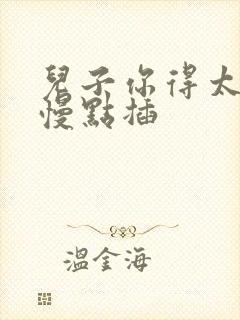 兒子你得太
慢點插
溫金海